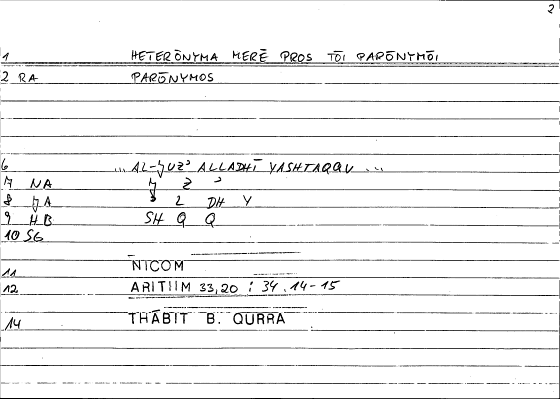 2
1 HETERŌNYMA MERĒ PROS TŌI PARŌNYMŌI
2 RA PARŌNYMOS
6 ... AL-ǦUZʾ ALLADHĪ YASHTAQQU ...
7 NA Ǧ Z ʾ
8 ǦA ʾ L DH Y
9 HB SH Q Q
10 SG
11 NICOM
12 ARITIIM 33,20 ; 34.14-15
14 THĀBIT B. QURRA